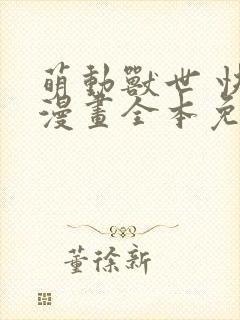 萌動獸世 快
漫畫全本免
董徐新